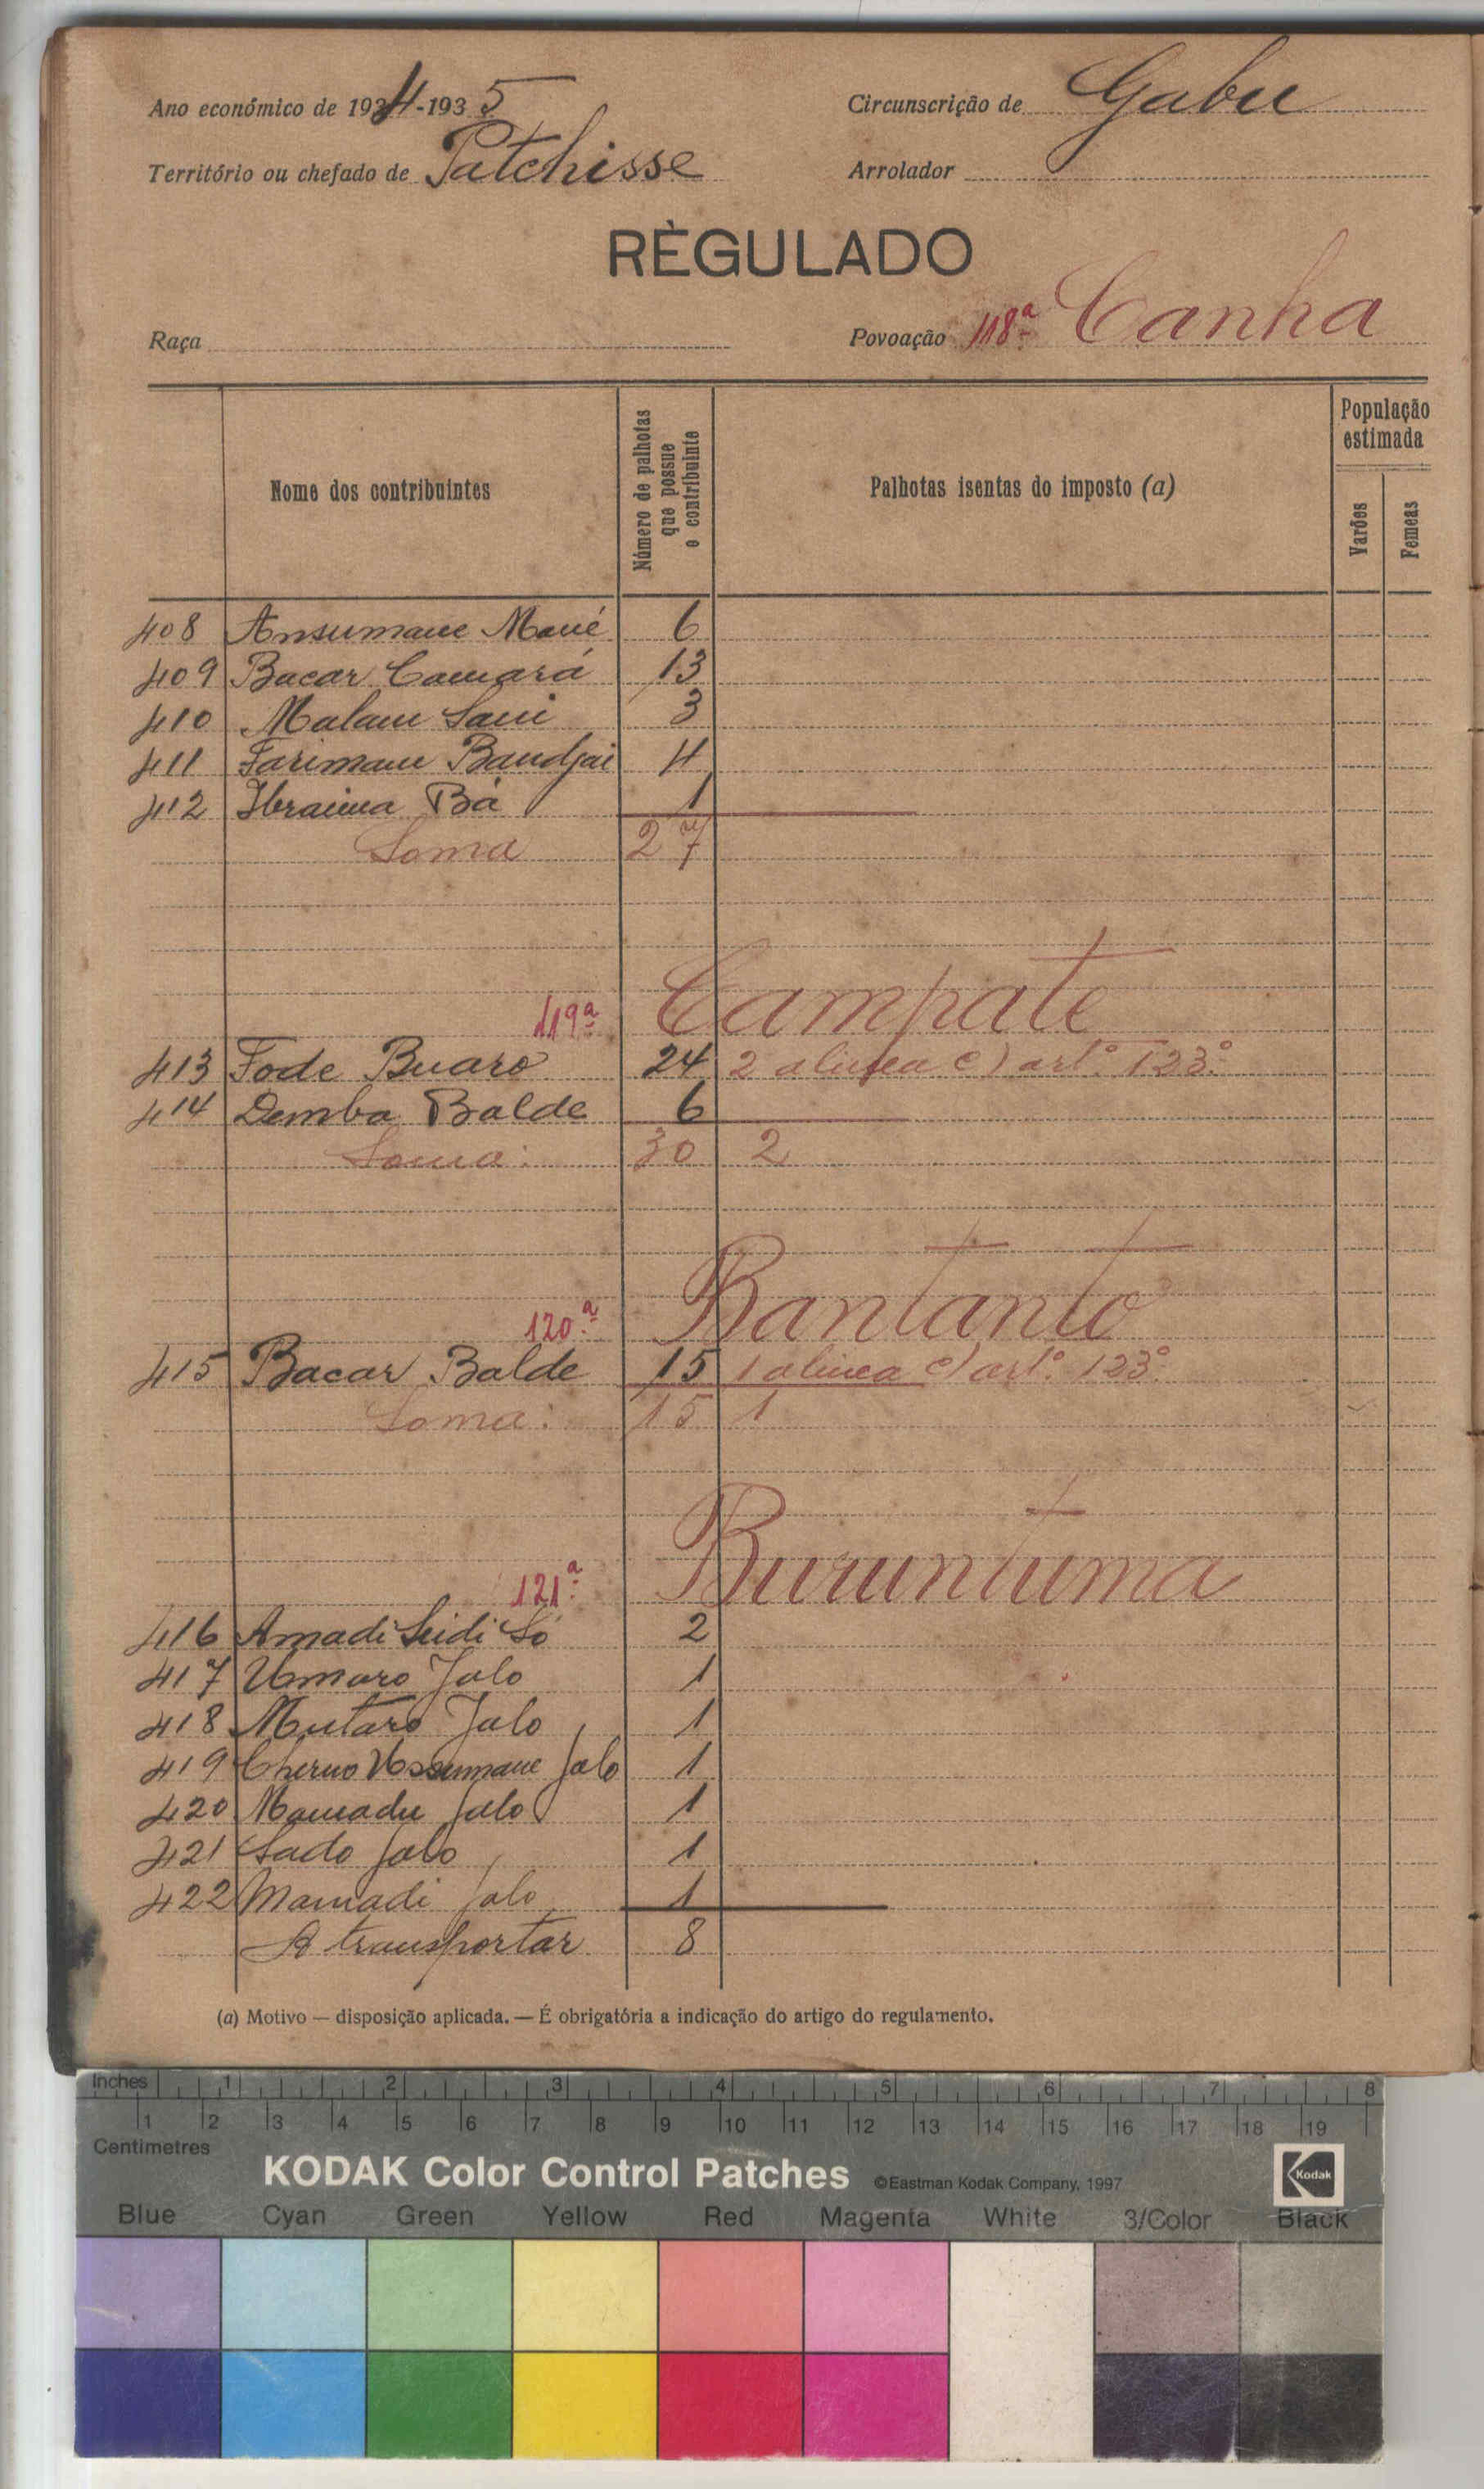 Ano económico de 1934-1935 Circunscrição de Gabu
Território ou chefado de Patchisse Arrolador
RÈGULADO
Raça Povoação 118ª Canha
Nome dos contribuintes Número de palhotas que possue o contribuinte Palhotas isentas do imposto (a) População estimada Varões Femeas
408 Ansumane Mané 6
409 Bacar Camará 13
410 Malam Sani 3
411 Farimane Bandjai 4
412 Ibraima Bá 1
Soma 27
119ª Campate
413 Fode Buaro 24 2 alinea c) artº. 123º.
414 Demba Balde 6
Soma: 30 2
120.ª Bantanto
415 Bacar Balde 15 1 alinea c) artº. 123º.
Soma: 15 1
121ª Buruntuma
416 Amadi Seidi Só 2
417 Umaro Jalo 1
418 Mutaro Jalo 1
419 Cherno Ussumane Jalo 1
420 Mamadu Jalo 1
421 Sado Jalo 1
422 Mamadi Jalo 1
A transportar 8
(a) Motivo — disposição aplicada. — É obrigatória a indicação do artigo do regulamento.
Inches 1 2 3 4 5 6 7 8
1 2 3 4 5 6 7 8 9 10 11 12 13 14 15 16 17 18 19
Centimetres
KODAK Color Control Patches ©Eastman Kodak Company, 1997 Kodak
Blue Cyan Green Yellow Red Magenta White 3/Color Black